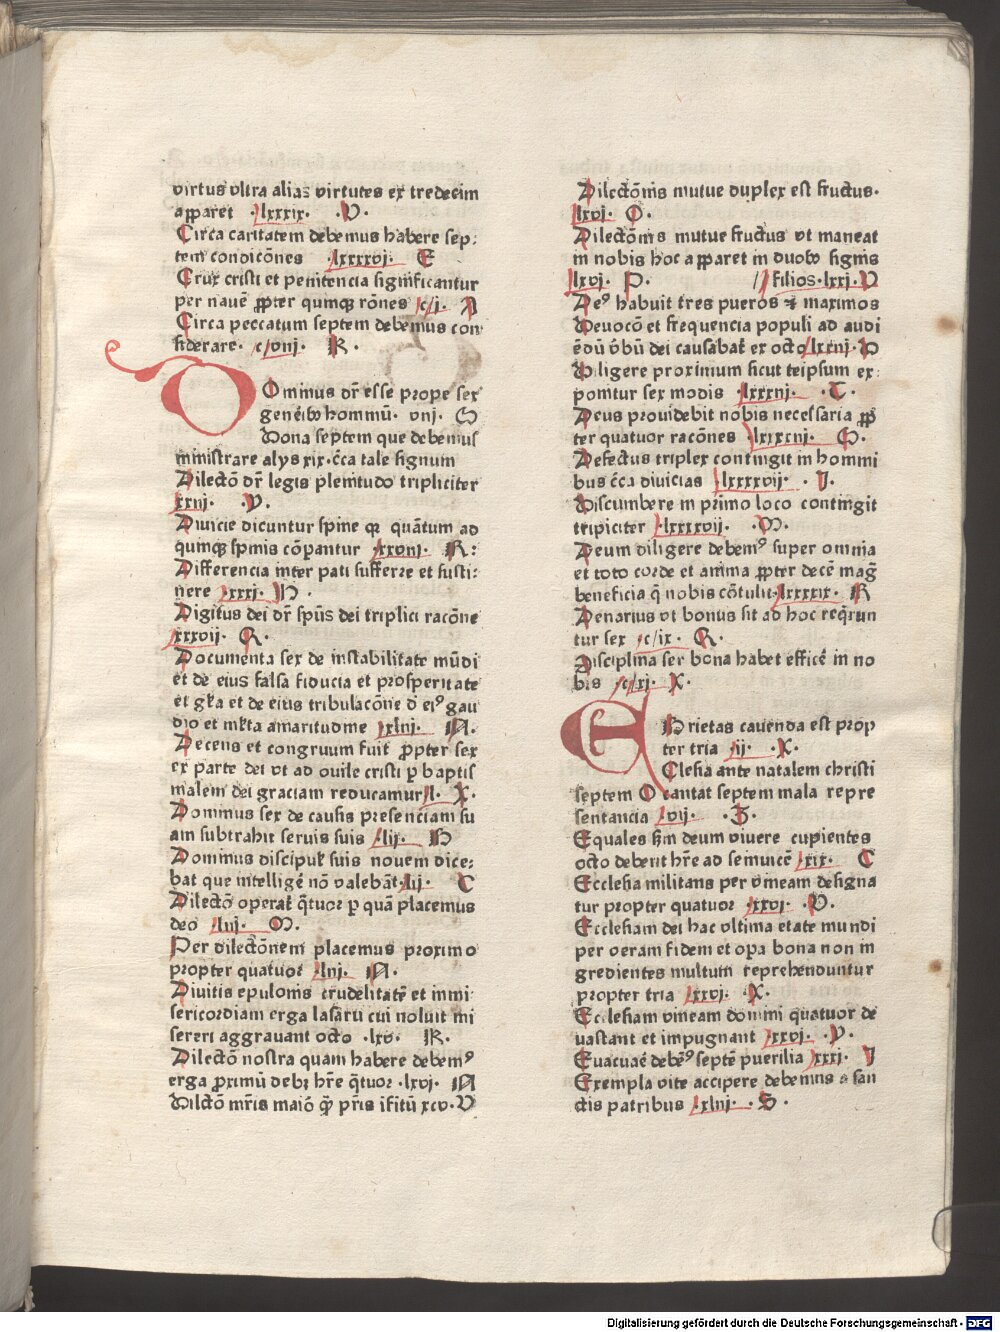 virtus vltra alias virtutes ex tredecim
apparet ·lxxxix· ·V·
Circa caritatem debemus habere sep:
tem condicōnes ·lxxxxvj· E
Crux cristi et penitencia significantur
per nauē ꝓpter quinqꝫ rōnes c/j· A
Circa peccatum septem debemus con
siderare· c/viij· R·
DOminus dr̄ esse prope sex
gen̄eibꝰ hominū· viij· S
Dona septem que debemus
ministrare alijs xix· c̄ca tale signum
Dilectō dr̄ legis plenitudo tripliciter
xxiij· ·V·
Diuicie dicuntur spine qꝛ quātum ad
quinqꝫ spinis cōpantur ·xxviij· R:
Differencia inter pati sufferre et susti:
nere ·xxxj· N·
Digitus dei dr̄ spūs dei triplici racōne
xxxvij· Q·
Documenta sex de instabilitate mūdi
et de eius falsa fiducia et prosperitate
et gl̄ia et de eius tribulacōne d̄ eiꝰ gau
dio et ml̄ta amaritudine ·xlnj· A·
Decens et congruum fuit ꝓpter sex
ex parte dei vt ad ouile cristi ꝑ baptis
malem dei graciam reducamur l· X·
Dominus sex de causis presenciam su
am subtrahit seruis suis ·lij· H
Dominus discipul̄ suis nouem dice:
bat que intelligē nō valebāt ·lij· C
Dilectō operat̄ q̄tuor ꝑ quā placemus
deo ·liij· M·
Per dilectōnem placemus proximo
propter quatuor ·liij· N·
Diuitis epulonis crudelitatē et inmi
sericordiam erga lasarū cui noluit mi
sereri aggrauant octo ·lxv· R·
Dilectō nostra quam habere debemꝰ
erga ꝓximū debꝫ hr̄e q̄tuor ·lxvj· N
Dilctō mr̄is maiō qꝫ pr̄is ī fitū xcv· V
Dilectōnis mutue duplex est fructus·
lxvj· O·
Dilectōnis mutue fructus vt maneat
in nobis hoc apparet in duobꝰ signis
lxvj· P· // filios·lxxj·V
Deꝰ habuit tres pueros ⁊ maximos
Deuocō et frequencia populi ad audi
ēdū v̄bū dei causabat̄ ex octo lxxiij· D
Diligere proximum sicut teipsum ex:
ponitur sex modis ·lxxxiij· ·T·
Deus prouidebit nobis necessaria ꝓp
ter quatuor racōnes ·lxxxxiij· S·
Defectus triplex contingit in homini
bus c̄ca diuicias ·lxxxxvij· ·J·
Discumbere in primo loco contingit
tripiciter ·lxxxxvij· M·
Deum diligere debemꝰ super omnia
et toto corde et anima ꝓpter decē maḡ
beneficia q̄ nobis cōtulit ·lxxxxix· R
Denarius vt bonus sit ad hoc req̄run
tur sex ·c/ix· R·
Disciplina ser bona habet efficē in no
bis ·c/xj· X·
EBrietas cauenda est prop
ter tria ·ij· ·X·
Clesia ante natalem christi
septem O cantat septem mala repre
sentancia ·vij· ·Z·
Equales s̄m deum viuere cupientes
octo debent hr̄e ad semuicē ·xix· C
Ecclesia militans per vineam designa
tur propter quatuor ·xxvj· ·V·
Ecclesiam dei hac vltima etate mundi
per veram fidem et opa bona non in
gredientes multum reprehenduntur
propter tria ·xxvj· ·X·
Ecclesiam vineam domini quatuor de
uastant et impugnant ·xxvj· ·V·
Euacuaē debēꝰ septē puerilia ·xxxj· J
Exempla vite accipere debemus a san
ctis patribus ·xlnj· ·S·
Digitalisierung gefördert durch die Deutsche Forschungsgemeinschaft - DFG